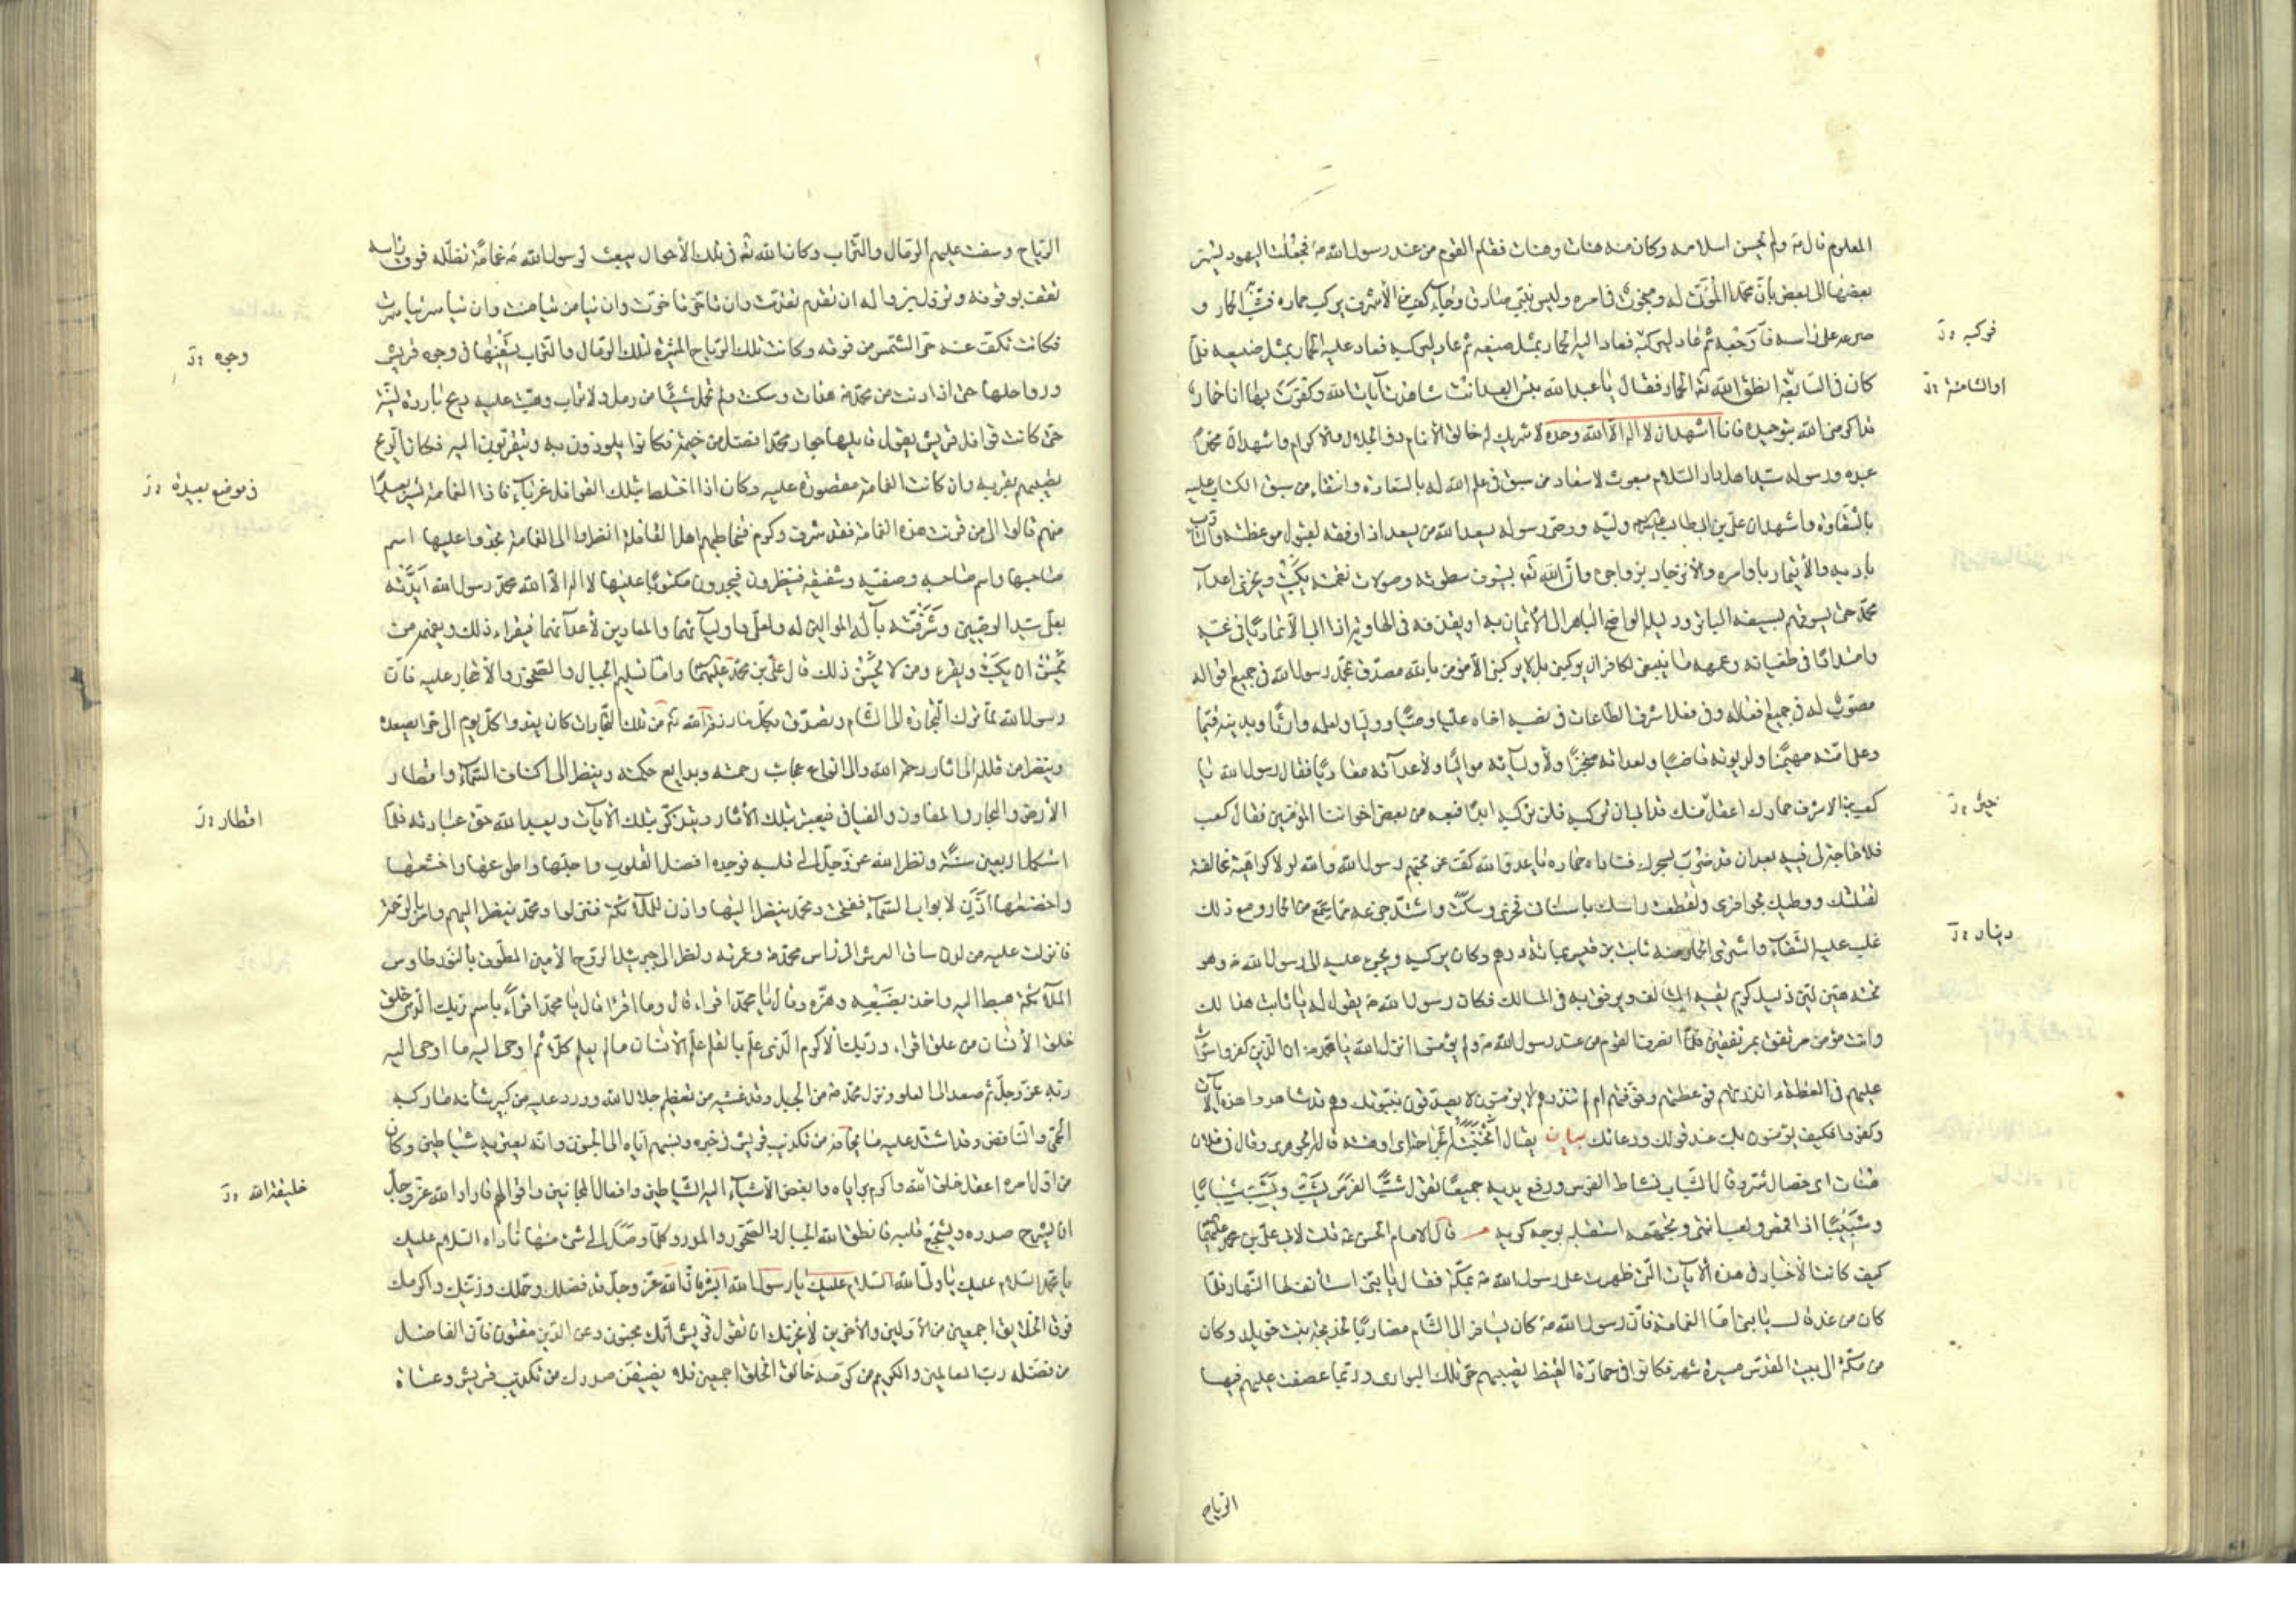 المعلوم قال ۴ ولم يحسن اسلامه وكان منه هنات وهنات فقام القوم من عند رسول الله ۴ فجعلت اليهود ليسّر
بعضها الى بعض بانّ محمّدا لمؤتّى له ومبخوت في امره وليس بنبيّ صادق وجاء كعب بن الأشرف يركب حماره فشبّ الحمار و
صرعه على راسه فاوجعه ثم عاد ليركبه فعاد اليه الحمار بمثل صنيعه ثم عاد ليركبه فعاد عليه الحمار بمثل صنيعه فلمّا
فركبه : خ
كان في السابعة انطق الله تع الحمار فقال يا عبد الله بئس العبد انت شاهدت آيات الله وكفرت بها انا حمارك
او الثامنة : خ
قد اكرمني الله بتوحيده فانا اشهد ان لا اله الا الله وحده لا شريك له خالق الأنام ذو الجلال والاكرام واشهد ان محمدا
عبده ورسوله سيد اهل دار السلام مبعوث لاسعاد من سبق في علم الله له بالسعادة واشقاء من سبق الكتاب عليه
بالشقاوة واشهد ان عليّ بن ابيطالب وليّه ووصيّ رسوله يسعد الله من يسعد اذا وفقه لقبول موعظته والتأدّب
بادبه والأيتمار باوامره والأنزجار بزواجره وانّ الله تع بسيوف سطوته وصولات نقمته يكبت ويخزي اعداء
محمّد حتى يسوقهم بسيفه الباتر ودليله الواضح الباهر الى الأيمان به او يقذفه في الهاوية اذا ابا الا تماديا في غيّه
وامتدادا في طغيانه وعمهه ما ينبغي لكافر ان يركبني بل لا يركبني الا مؤمن بالله مصدّق بمحمّد رسول الله في جميع اقواله
مصوّب له في جميع افعاله وفي فعل اشرف الطاعات في نصبه اخاه عليا وصيّا ووليّا ولعلمه وارثا وبدينه قيّما
وعلى امّته مهيمنا ولديونه قاضيا ولعداته منجزا ولأوليائه مواليا ولأعدائه معاديا فقال رسول الله يا
كعب بن الاشرف حمارك اعقل منك قد ابى ان تركبه فلن تركبه ابدا فبعه من بعض اخواننا المؤمنين فقال كعب
خيرٌ : خ
فلا حاجة لي فيه بعد ان قد ضرب بسحرك فناداه حماره يا عدوّ الله كفّ عن تجهّم رسول الله والله لولا كراهية مخالفته
لقتلتك ووطيتك بحوافري ولقطعت راسك باسناني فخزي وسكت واشتدّ جزعه ممّا سمع من الحمار ومع ذلك
غلب عليه الشقاء واشترى الحمار منه ثابت بن قيس بمائة درهم وكان يركبه ويجيء عليه الى رسول الله ۴ وهو
دينار : خ
تحته هيّن ليّن ذليل كريم يقيه المتالف ويرفق به في المسالك فكان رسول الله ۴ يقول له يا ثابت هذا لك
وانت مؤمن مرتفق بمرتفقين فلمّا انصرف القوم من عند رسول الله ۴ ولم يؤمنوا انزل الله يا محمد ان الذين كفروا سواء
عليهم في العظة ءانذرتهم فوعظتهم وخوّفتهم ام لم تنذرهم لا يؤمنون لا يصدّقون بنبوّتك وهم قد شاهدوا هذه الآيات
وكفروا فكيف يؤمنون بك عند قولك ودعائك بيان يقال اخْبَتَ لله قال الجوهري وقال في فلان
هنات اى خصال شرّ وقال الشباب نشاط الفرس ورفع يديه جميعًا تقول شبّ الفرس يَشِبّ ويَشُبّ شبابًا
وشبيبًا اذا قمص ولعب انتهى وتجهّمه استقبله بوجه كريه م قال الامام الحسن ع قلت لابي عليّ بن محمد عليهما السلام
كيف كانت الأخبار في هذه الآيات التي ظهرت على رسول الله ۴ بمكّة فقال يا بنيّ استأنف لها النهار فلمّا
كان من غد قال يا بنيّ امّا الغمامة فانّ رسول الله ۴ كان يسافر الى الشام مضاربا لخديجة بنت خويلد وكان
من مكّة الى بيت المقدّس مسيرة شهر فكانوا في حمارّة القيظ يصيبهم حرّ تلك البوادي وربّما عصفت عليهم فيها
الرياح
الرياح وسفت عليهم الرمال والتراب وكان الله تع في تلك الأحوال يبعث لرسول الله ۴ غمامة تظلّه فوق راسه
تقف بوقوفه وتزول بزواله ان تقدّم تقدّمت وان تاخّر تاخّرت وان تيامن تيامنت وان تياسر تياسرت
فكانت تكفّ عنه حرّ الشمس من فوقه وكانت تلك الرياح المثيرة لتلك الرمال والتراب تسفيها في وجه قريش
وجوه : خ
ورواحلها حتى اذا دنت من محمّد ۴ هدات وسكنت ولم تحمل شيئًا من رمل ولا تراب وهبّت عليه ريح باردة ليّنة
حتى كانت قوافل قريش يقول قايلها جوار محمّد افضل من خيمة فكانوا يلوذون به ويتقرّبون اليه فكان الروح
يصيبهم بقربه وان كانت الغمامة مقصورة عليه وكان اذا اختلط بتلك القوافل غرباء فاذا الغمامة تسير بعيدا
في موضع بعيدة : خ
منهم قالوا الى من قرنت هذه الغمامة فقد شرف وكرم فتخاطبهم اهل القافلة انظروا الى الغمامة تجدوا عليها اسم
صاحبها واسم صاحبه وصفيّه وشقيقه فينظرون فيجدون مكتوبًا عليها لا اله الا الله محمّد رسول الله ايّدته
بعليّ سيد الوصيين وشرّفته بآله الموالين له ولعليّ واوليائهما والمعادين لأعدائهما فيقراء ذلك ويفهمه من
يحسن ان يكتب ويقرء ومن لا يحسن ذلك قال عليّ بن محمّد عليهما السلام وامّا تسليم الجبال والصخور والأحجار عليه فانّ
رسول الله لمّا ترك التجارة الى الشام وتصدّق بكلّ ما رزقه الله تع من تلك التجارات كان يغدوا كلّ يوم الى حراء يصعده
وينظر من قلله الى اثار رحمة الله والى انواع عجائب رحمته وبدايع حكمته وينظر الى اكناف السماء واقطار
الأرض والبحار والمفاوز والفيافي فيعتبر بتلك الأثار ويتذكّر بتلك الآيات ويعبد الله حقّ عبادته فلمّا
اقطار : خ
استكمل اربعين سنة ونظر الله عزّ وجلّ الى قلبه فوجده افضل القلوب واجلّها واطوعها واخشعها
واخضعها اذن لابواب السماء ففتحت ومحمّد ينظر اليها واذن للملائكة فنزلوا ومحمّد ينظر اليهم وامر بالرحمة
فانزلت عليه من لدن ساق العرش الى راس محمّد ۴ وغمرته ونظر الى جبرئيل الروح الأمين المطوّق بالنور طاوس
الملائكة هبط اليه واخذ بضبعيه وهزّه وقال يا محمّد اقراء قال وما اقرا قال يا محمّد اقراء باسم ربّك الذي خلق
خلق الأنسان من علق اقراء وربّك الأكرم الذي علّم بالقلم علّم الأنسان ما لم يعلم كلّا ثم اوحى اليه ما اوحى اليه
ربّه عزّ وجلّ ثم صعد الى العلو ونزل محمّد ۴ من الجبل وقد غشيه من تعظيم جلال الله وورد عليه من كبير شأنه ما ركبه
الحمّى والنافض وقد اشتدّ عليه ما يخافه من تكذيب قريش في خبره ونسبتهم اياه الى الجنون وانّه يعتريه شياطين وكان
من اوّل امره اعقل خلق الله واكرم براياه وابغض الأشياء اليه الشياطين وافعال المجانين واقوالهم فاراد الله عزّ وجلّ
خليقة الله : خ
ان يشرح صدره ويشجّع قلبه فانطق الله الجبال والصخور والمدر وكلّما وصل الى شيء منها ناداه السلام عليك
يا محمّد السلام عليك يا وليّ الله السلام عليك يا رسول الله ابشر فانّ الله عزّ وجلّ قد فضّلك وجمّلك وزيّنك واكرمك
فوق الخلايق اجمعين من الأوّلين والأخرين لا يحزنك ان تقول قريش انّك مجنون وعن الدين مفتون فانّ الفاضل
من فضّله ربّ العالمين والكريم من كرّمه خالق الخلق اجمعين فلا يضيقنّ صدرك من تكذيب قريش وعتاة